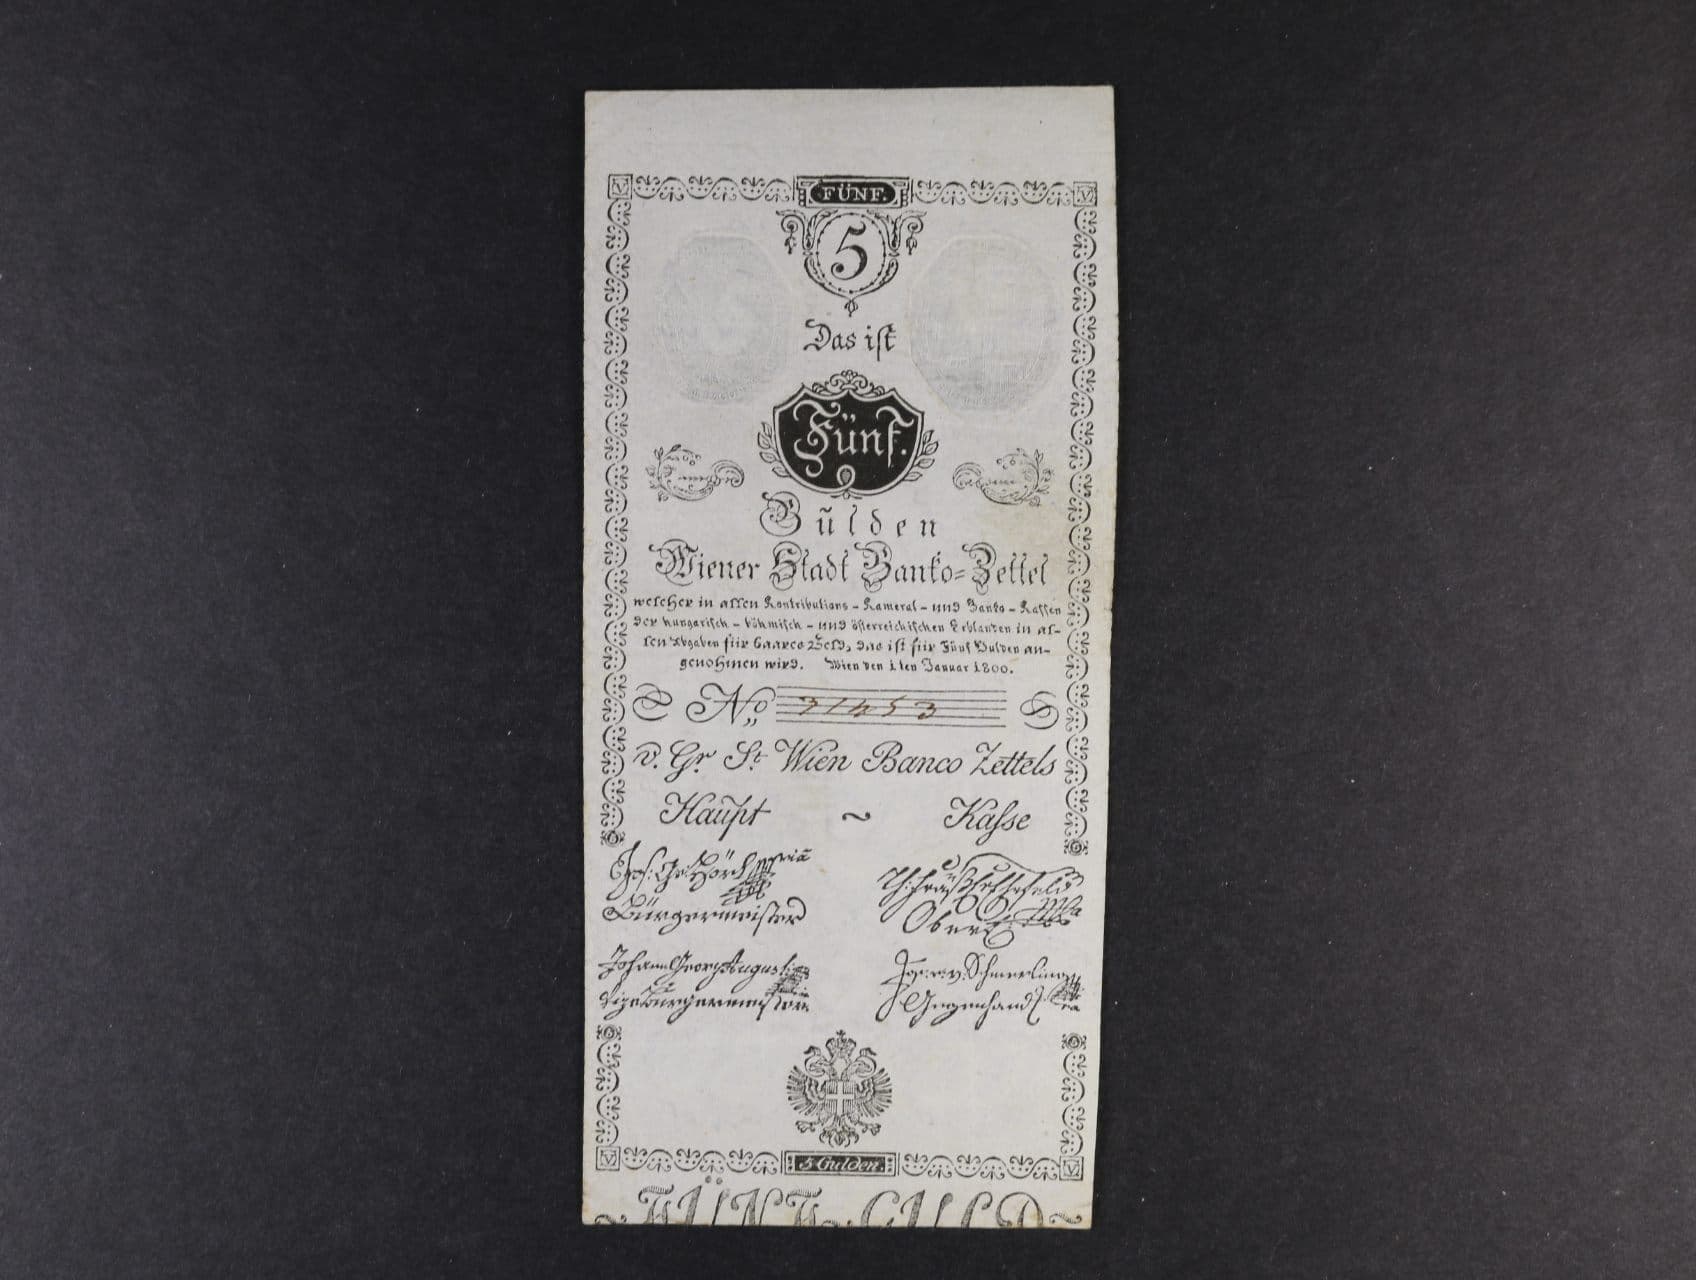 V. FÜNF. V.
5
Das iſt
Fünf.
Gulden
Wiener Stadt Banko=Zettel
welcher in allen Kontributions - Kameral - und Banko - Kaſſen
der hungariſch - böhmiſch - und öſterreichiſchen Erblanden in al-
len Abgaben für baares Geld, das iſt für Fünf Gulden an-
genohmen wird. Wien den 1ten Januar 1800.
No 71453
v. Gr. St. Wien Banco Zettels
Haupt ~ Kaſse
Bürgermeister
Johann Georg Augusti
Vizebürgermeister
v. Schmerling
V 5 Gulden. V
~ FÜNF GULD ~